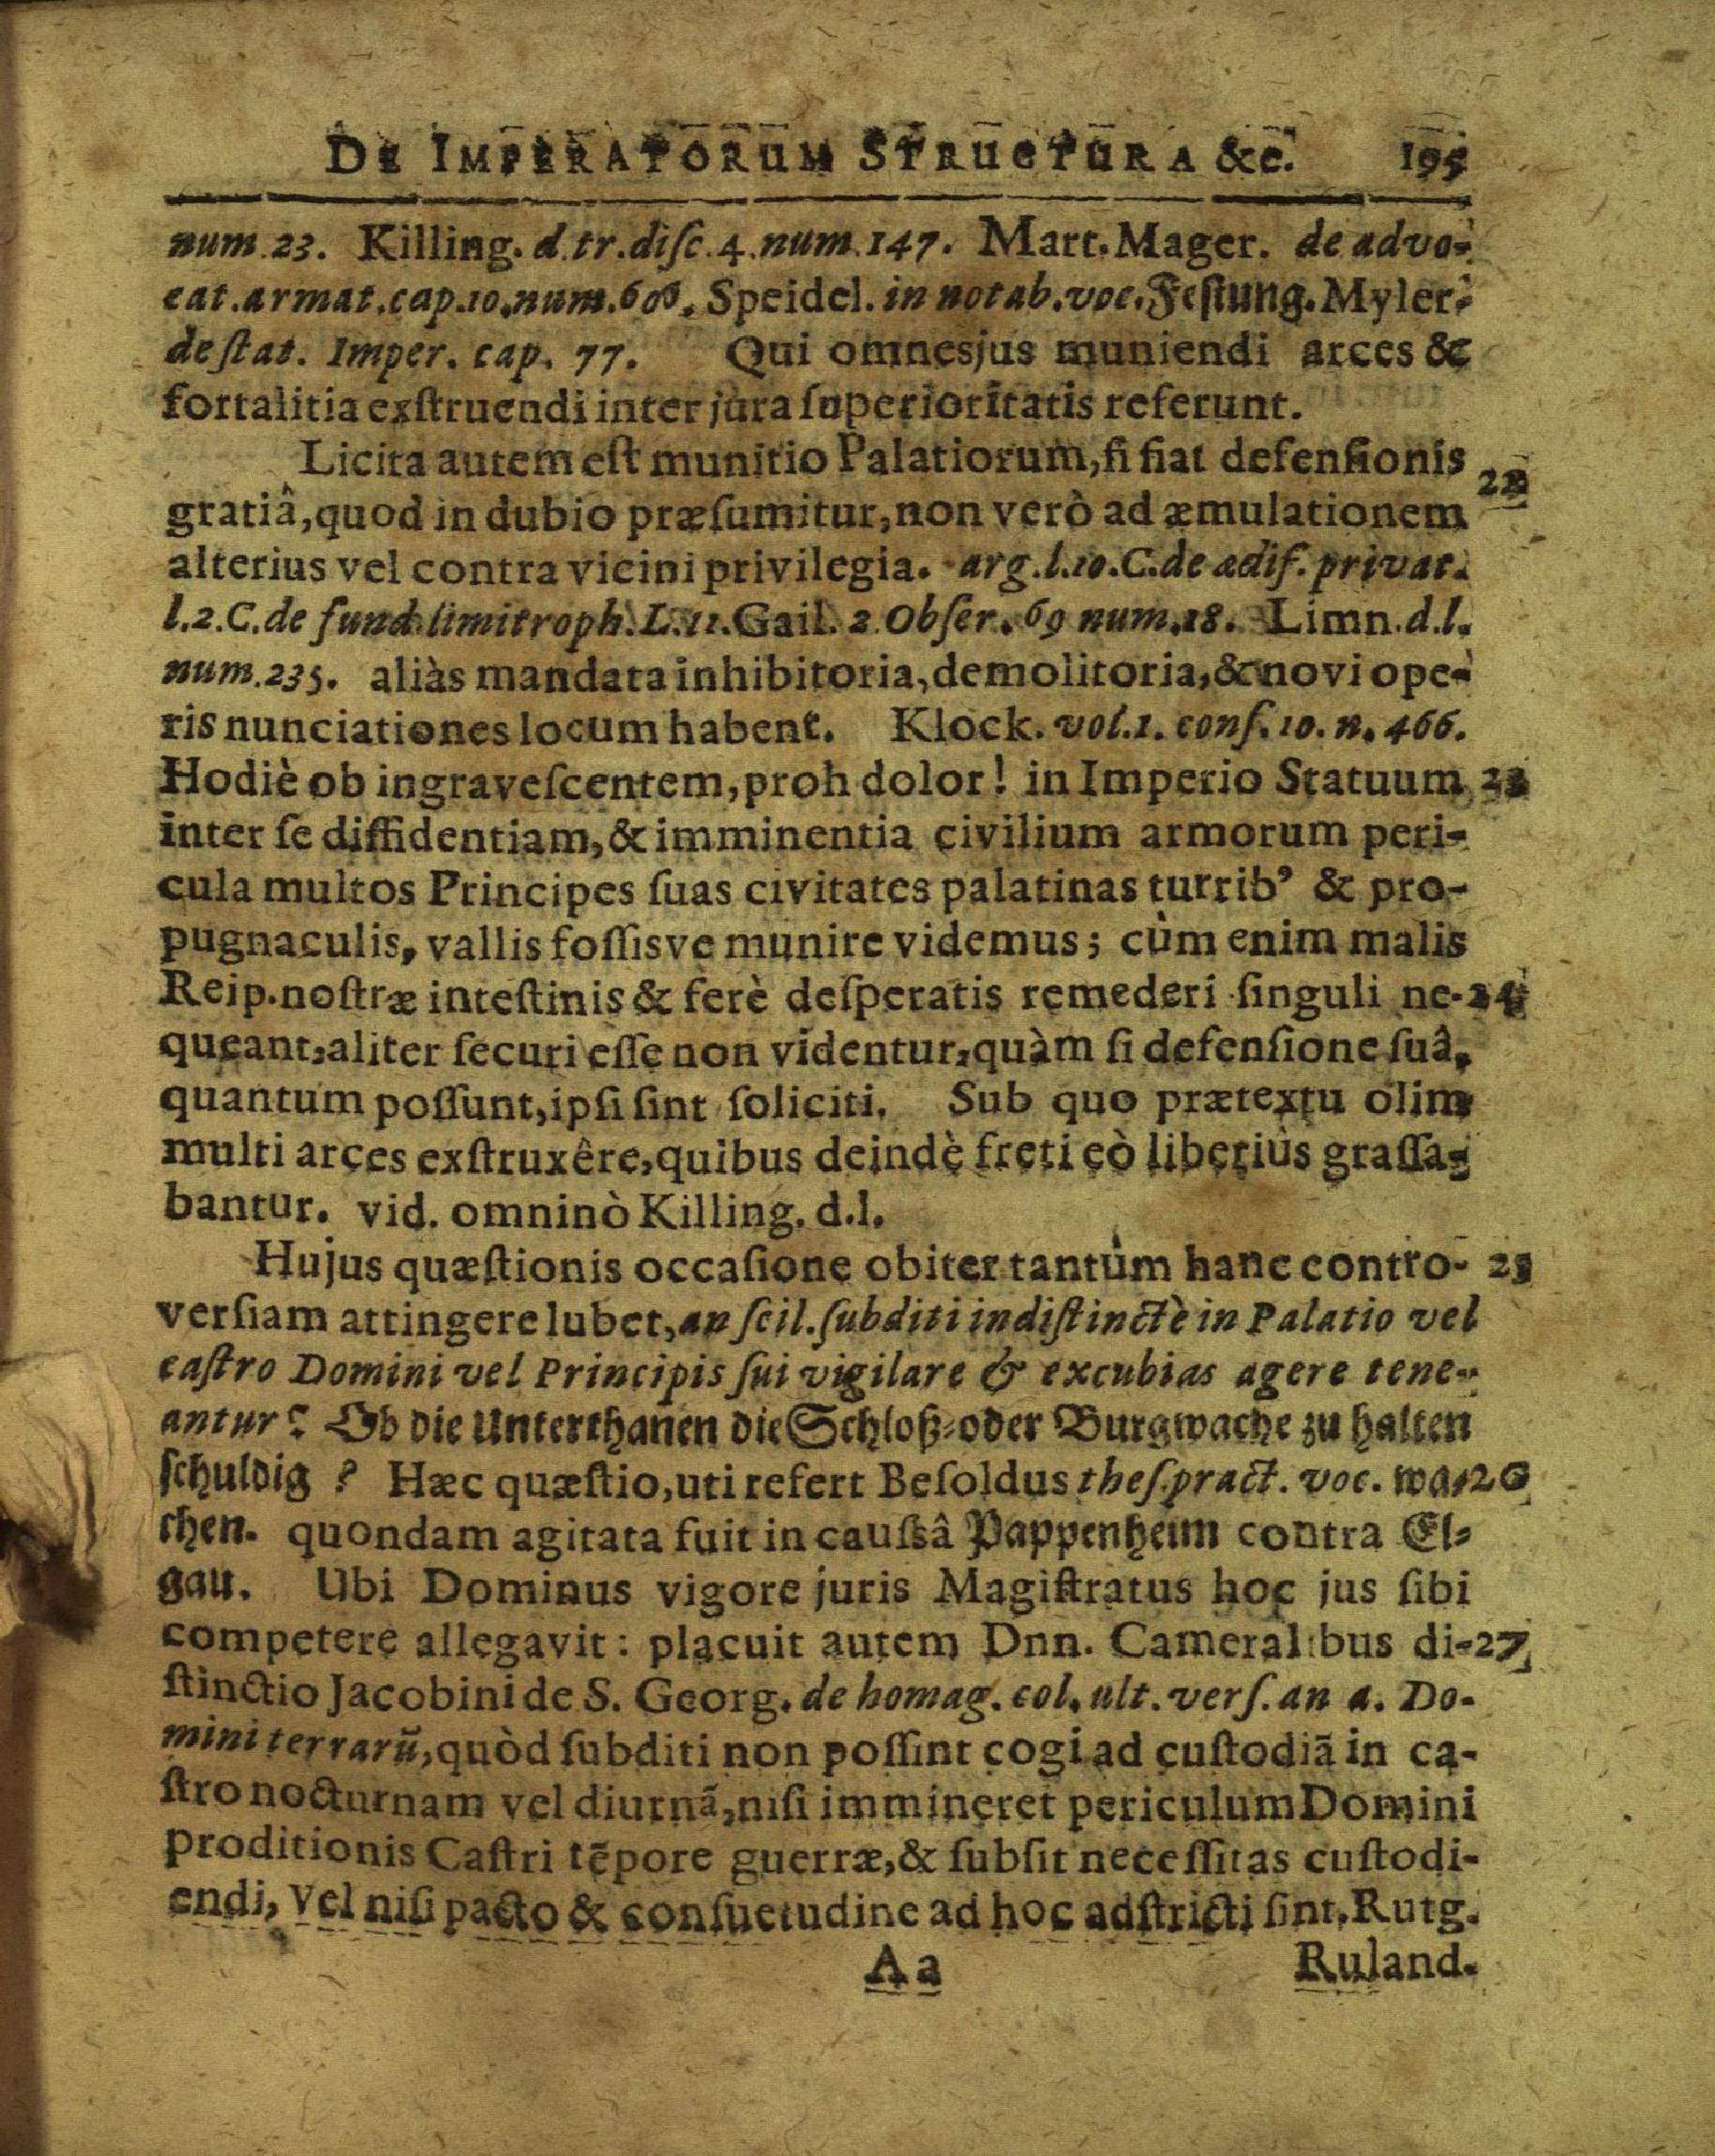 DE IMPERATORUM STRUCTURA &c. 195
num.23. Killing. d.tr.diſc.4.num.147. Mart.Mager. de advo-
cat.armat.cap.10.num.606. Speidel. in notab.voc. Feſtung. Myler.
de ſtat. Imper. cap. 77. Qui omnesjus muniendi arces &
fortalitia exſtruendi inter jura ſuperioritatis referunt.
Licita autem eſt munitio Palatiorum, ſi fiat defenſionis 22
gratiâ, quod in dubio præſumitur, non verò ad æmulationem
alterius vel contra vicini privilegia. arg.l.10.C.de ædif. privat.
l.2.C.de fund.limitroph.L.11.Gail. 2.Obſer. 69 num.18. Limn.d.l.
num.235. aliàs mandata inhibitoria, demolitoria, & novi ope-
ris nunciationes locum habent. Klock. vol.1. conſ.10. n. 466.
Hodiè ob ingraveſcentem, proh dolor! in Imperio Statuum 23
inter ſe diffidentiam, & imminentia civilium armorum peri-
cula multos Principes ſuas civitates palatinas turrib' & pro-
pugnaculis, vallis foſſisve munire videmus; cùm enim malis
Reip.noſtræ inteſtinis & ferè deſperatis remederi ſinguli ne- 24
queant, aliter ſecuri eſſe non videntur, quàm ſi defenſione ſuâ,
quantum poſſunt, ipſi ſint ſoliciti. Sub quo prætextu olim
multi arces exſtruxêre, quibus deindè freti eò liberiùs graſſa-
bantur. vid. omninò Killing. d.l.
Hujus quæſtionis occaſione obiter tantùm hanc contro- 25
verſiam attingere lubet, an ſcil. ſubditi indiſtinctè in Palatio vel
caſtro Domini vel Principis ſui vigilare & excubias agere tene-
antur? Ob die Unterthanen die Schloß- oder Burgwache zu halten
ſchuldig? Hæc quæſtio, uti refert Beſoldus theſ.pract. voc. wa- 26
chen. quondam agitata fuit in cauſsâ Pappenheim contra El-
gau. Ubi Dominus vigore juris Magiſtratus hoc jus ſibi
competere allegavit: placuit autem Dnn. Cameralibus di- 27
ſtinctio Jacobini de S. Georg. de homag. col. ult. verſ. an a. Do-
mini terrarũ, quòd ſubditi non poſſint cogi ad cuſtodiã in ca-
ſtro nocturnam vel diurnã, niſi immineret periculum Domini
proditionis Caſtri tẽpore guerræ, & ſubſit neceſſitas cuſtodi-
endi, Vel niſi pacto & conſuetudine ad hoc adſtricti ſint, Rutg.
Aa Ruland.